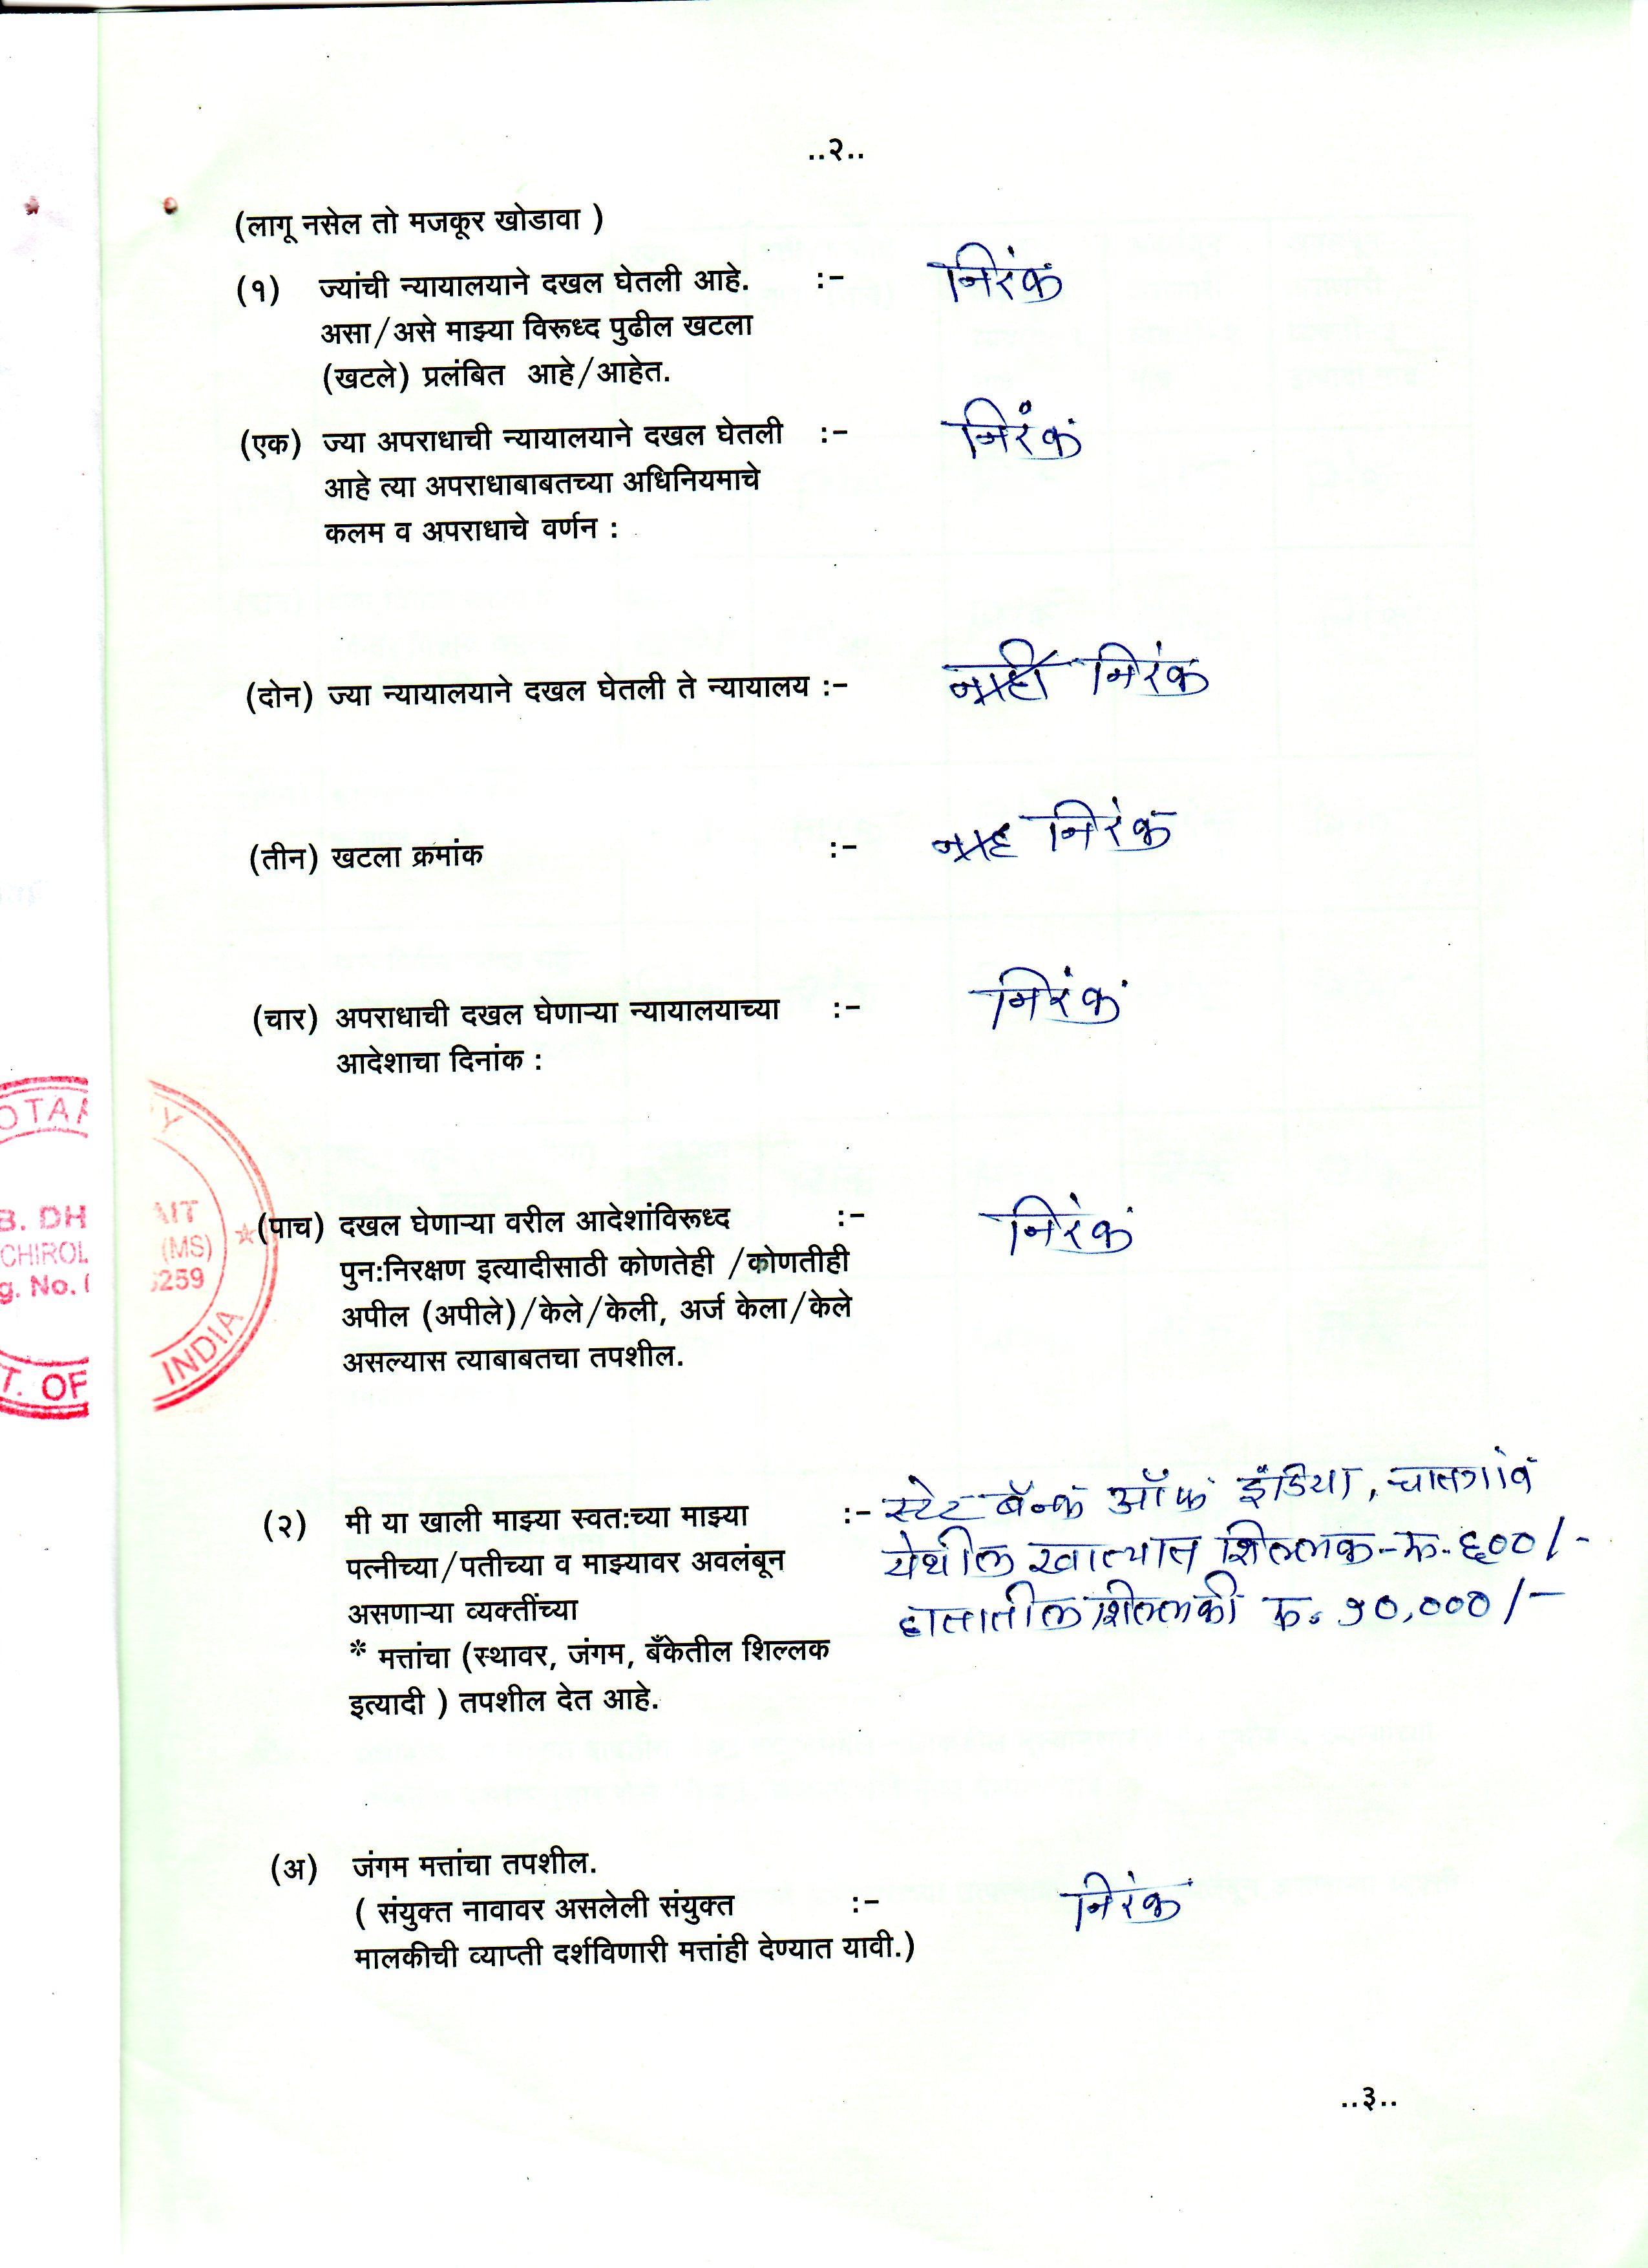 ..२..
(लागू नसेल तो मजकूर खोडावा )
(१) ज्यांची न्यायालयाने दखल घेतली आहे. :- निरंक
असा/असे माझ्या विरूध्द पुढील खटला
(खटले) प्रलंबित आहे/आहेत.
(एक) ज्या अपराधाची न्यायालयाने दखल घेतली :- निरंक
आहे त्या अपराधाबाबतच्या अधिनियमाचे
कलम व अपराधाचे वर्णन :
(दोन) ज्या न्यायालयाने दखल घेतली ते न्यायालय :- नाही निरंक
(तीन) खटला क्रमांक :- निरंक
(चार) अपराधाची दखल घेणाऱ्या न्यायालयाच्या :- निरंक
आदेशाचा दिनांक :
(पाच) दखल घेणाऱ्या वरील आदेशांविरूध्द :- निरंक
पुन:निरक्षण इत्यादीसाठी कोणतेही /कोणतीही
अपील (अपीले)/केले/केली, अर्ज केला/केले
असल्यास त्याबाबतचा तपशील.
OTAR Y
B. DH AIT
CHIROL (MS)
g. No. ( 5259
T. OF INDIA
(२) मी या खाली माझ्या स्वत:च्या माझ्या :- स्टेट बॅन्क ऑफ इंडिया, चातगांव
पत्नीच्या/पतीच्या व माझ्यावर अवलंबून येथील खात्यात शिल्लक-रू-६००/-
असणाऱ्या व्यक्तींच्या हातातील शिल्लकी रू. १०,०००/-
* मत्तांचा (स्थावर, जंगम, बँकेतील शिल्लक
इत्यादी ) तपशील देत आहे.
(अ) जंगम मत्तांचा तपशील.
( संयुक्त नावावर असलेली संयुक्त :- निरंक
मालकीची व्याप्ती दर्शविणारी मत्तांही देण्यात यावी.)
..३..